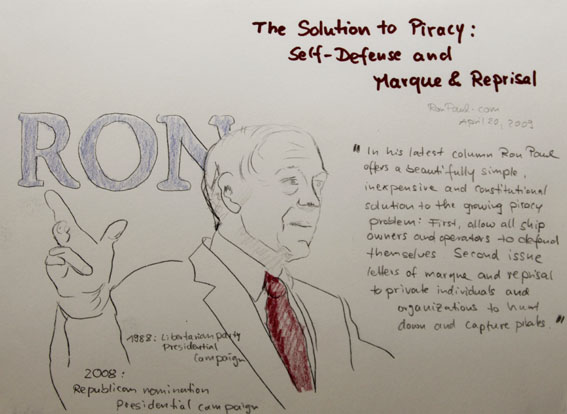 The Solution to Piracy:
Self-Defense and
Marque & Reprisal
RonPaul.com
April 20, 2009
RON
"In his latest column Ron Paul
offers a beautifully simple,
inexpensive and constitutional
solution to the growing piracy
problem: First, allow all ship
owners and operators to defend
themselves Second issue
letters of marque and reprisal
to private individuals and
organizations to hunt
down and capture pirates."
1988: Libertarian party
Presidential
campaign
2008:
Republican nomination
Presidential campaign